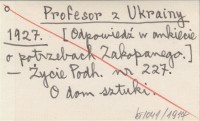 Profesor z Ukrainy
1927. [Odpowiedź w ankiecie
o potrzebach Zakopanego.]
— Życie Podh. nr 227.
O dom sztuki.